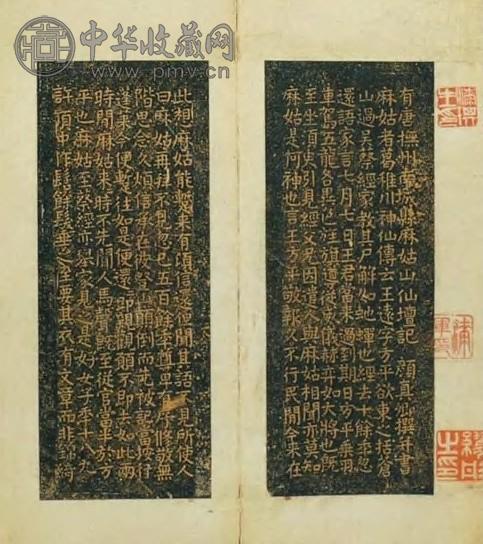 中华收藏网
www.pmv.cn
有唐撫州南城縣麻姑山仙壇記 顏真卿撰并書
麻姑者葛稚川神仙傳云王遠字方平欲東之括蒼
山過吳蔡經家教其尸解如虵蟬也經去十餘年忽
還語家言七月七日王君當來過到期日方平乘羽
車駕五龍各異色旌旗導從威儀赫弈如大將也既
至坐須臾引見經父兄因遣人與麻姑相聞亦莫知
麻姑是何神也言王方平敬報久不行民間今來在
此想麻姑能暫來有頃信還但聞其語不見所使人
曰麻姑再拜不見忽已五百餘年尊卑有序修敬無
階思念久煩信承在彼登山顛倒而先被記當按行
蓬萊今便暫往如是便還還即親觀願不即去如此兩
時間麻姑來時不先聞人馬聲既至從官當半於方
平也麻姑至蔡經亦舉家見之是好女子年十八九
許頂中作髻餘髮垂之至要其衣有文章而非錦綺